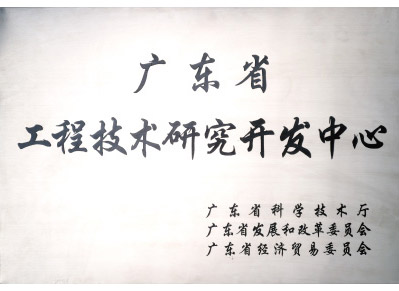 广东省
工程技术研究开发中心
广东省科学技术厅
广东省发展和改革委员会
广东省经济贸易委员会